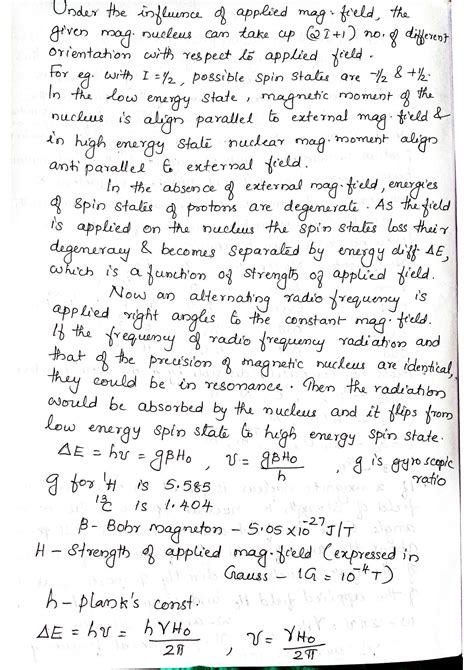 Under the influence of applied mag. field, the
given mag. nucleus can take up (2I+1) no. of different
orientation with respect to applied field.
For eg. with I = 1/2, possible spin states are -1/2 & +1/2.
In the low energy state, magnetic moment of the
nucleus is align parallel to external mag. field &
in high energy state nuclear mag. moment align
antiparallel to external field.
In the absence of external mag. field, energies
of spin states of protons are degenerate. As the field
is applied on the nucleus the spin states loss their
degeneracy & becomes separated by energy diff ΔE,
which is a function of strength of applied field.
Now an alternating radio frequency is
applied right angles to the constant mag. field.
If the frequency of radio frequency radiation and
that of the precision of magnetic nucleus are identical,
they could be in resonance. Then the radiation
would be absorbed by the nucleus and it flips from
low energy spin state to high energy spin state.
ΔE = hν = gβH₀ , ν = gβH₀/h , g is gyroscopic ratio
g for ¹H is 5.585
¹³C is 1.404
β - Bohr magneton - 5.05 x10⁻²⁷ J/T
H - Strength of applied mag. field (expressed in
Gauss - 1G = 10⁻⁴T)
h - plank's const.
ΔE = hν = hγH₀/2π , ν = γH₀/2π